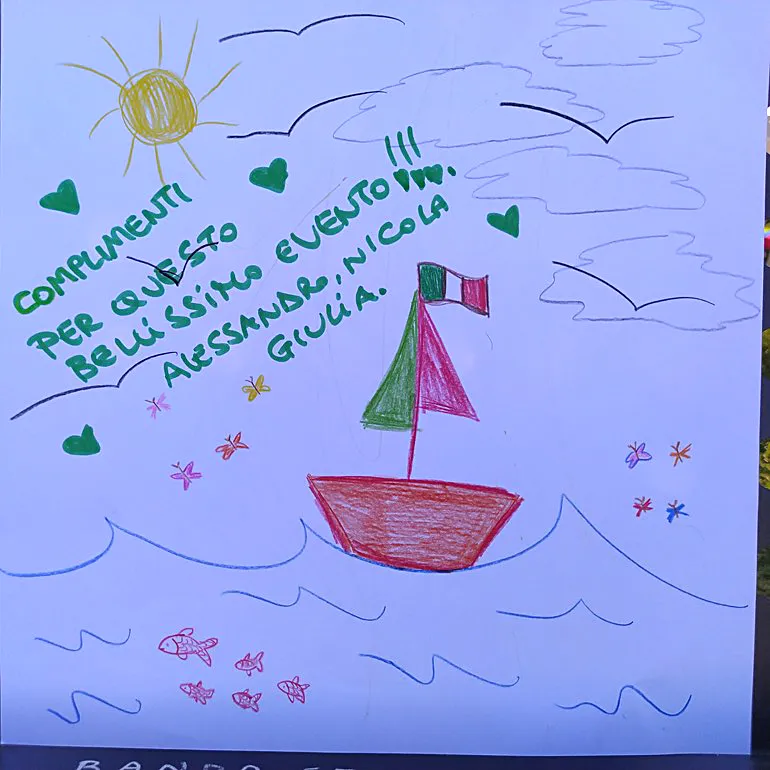 COMPLIMENTI
PER QUESTO
BELLISSIMO EVENTO!!!
ALESSANDRO, NICOLA
GIULIA.